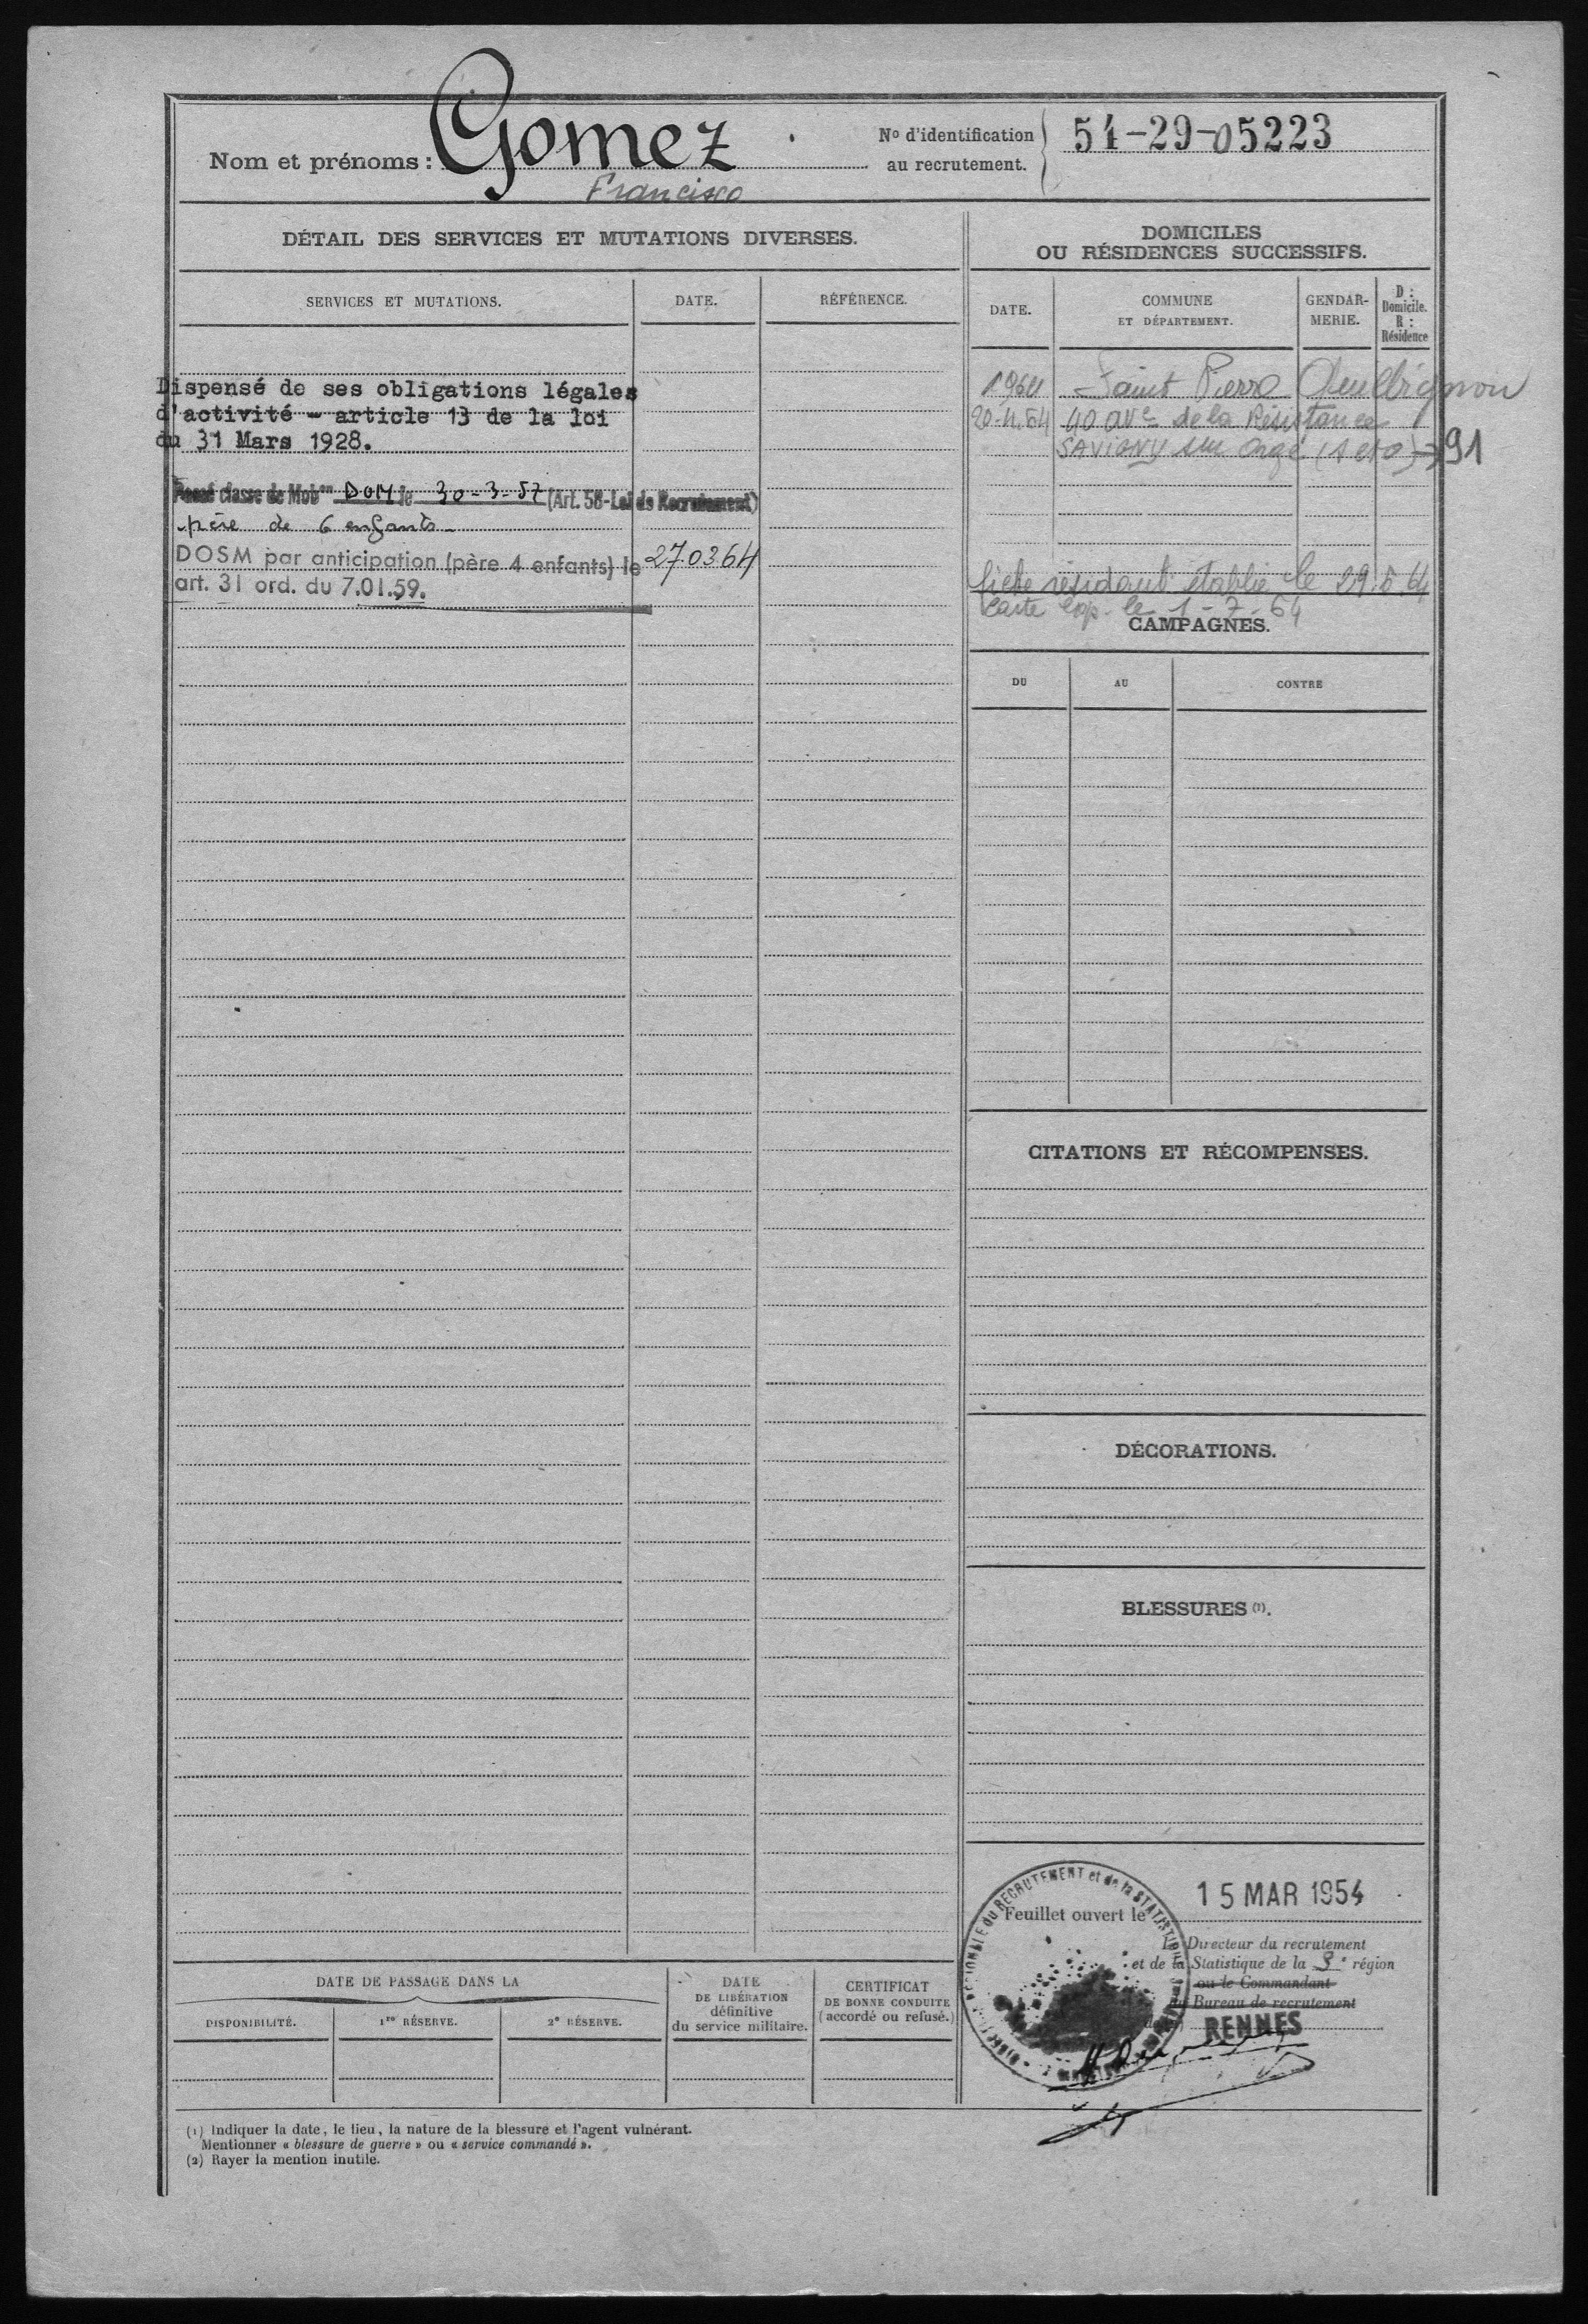 Nom et prénoms : Gomez
Francisco
N° d'identification
au recrutement.
54-29-05223
DÉTAIL DES SERVICES ET MUTATIONS DIVERSES.
SERVICES ET MUTATIONS.
DATE.
RÉFÉRENCE.
Dispensé de ses obligations légales
d'activité - article 13 de la loi
du 31 Mars 1928.
Passé classe de Mob on DOM le 30-3-57 (Art. 58-Loi de Recrutement)
père de 6 enfants
DOSM par anticipation (père 4 enfants) le 27.03.64
art. 31 ord. du 7.01.59.
DOMICILES
OU RÉSIDENCES SUCCESSIFS.
DATE.
COMMUNE
ET DÉPARTEMENT.
GENDAR-
MERIE.
D :
Domicile.
R :
Résidence
Saint Pierre Quilbignon
40 ave de la Résistance
SAVIGNY sur Orge (S et O) → 91
fiche résidant établie le 29.5.64
Carte le 1-7-64
CAMPAGNES.
DU
AU
CONTRE
CITATIONS ET RÉCOMPENSES.
DÉCORATIONS.
BLESSURES (1).
Feuillet ouvert le 15 MAR 1954
Le Directeur du recrutement
et de la Statistique de la 3e région
ou le Commandant
du Bureau de recrutement
RENNES
RECRUTEMENT et de la STATISTIQUE
DATE DE PASSAGE DANS LA
DISPONIBILITÉ.
1re RÉSERVE.
2e RÉSERVE.
DATE
DE LIBÉRATION
définitive
du service militaire.
CERTIFICAT
DE BONNE CONDUITE
(accordé ou refusé.)
(1) Indiquer la date, le lieu, la nature de la blessure et l'agent vulnérant.
Mentionner « blessure de guerre » ou « service commandé ».
(2) Rayer la mention inutile.